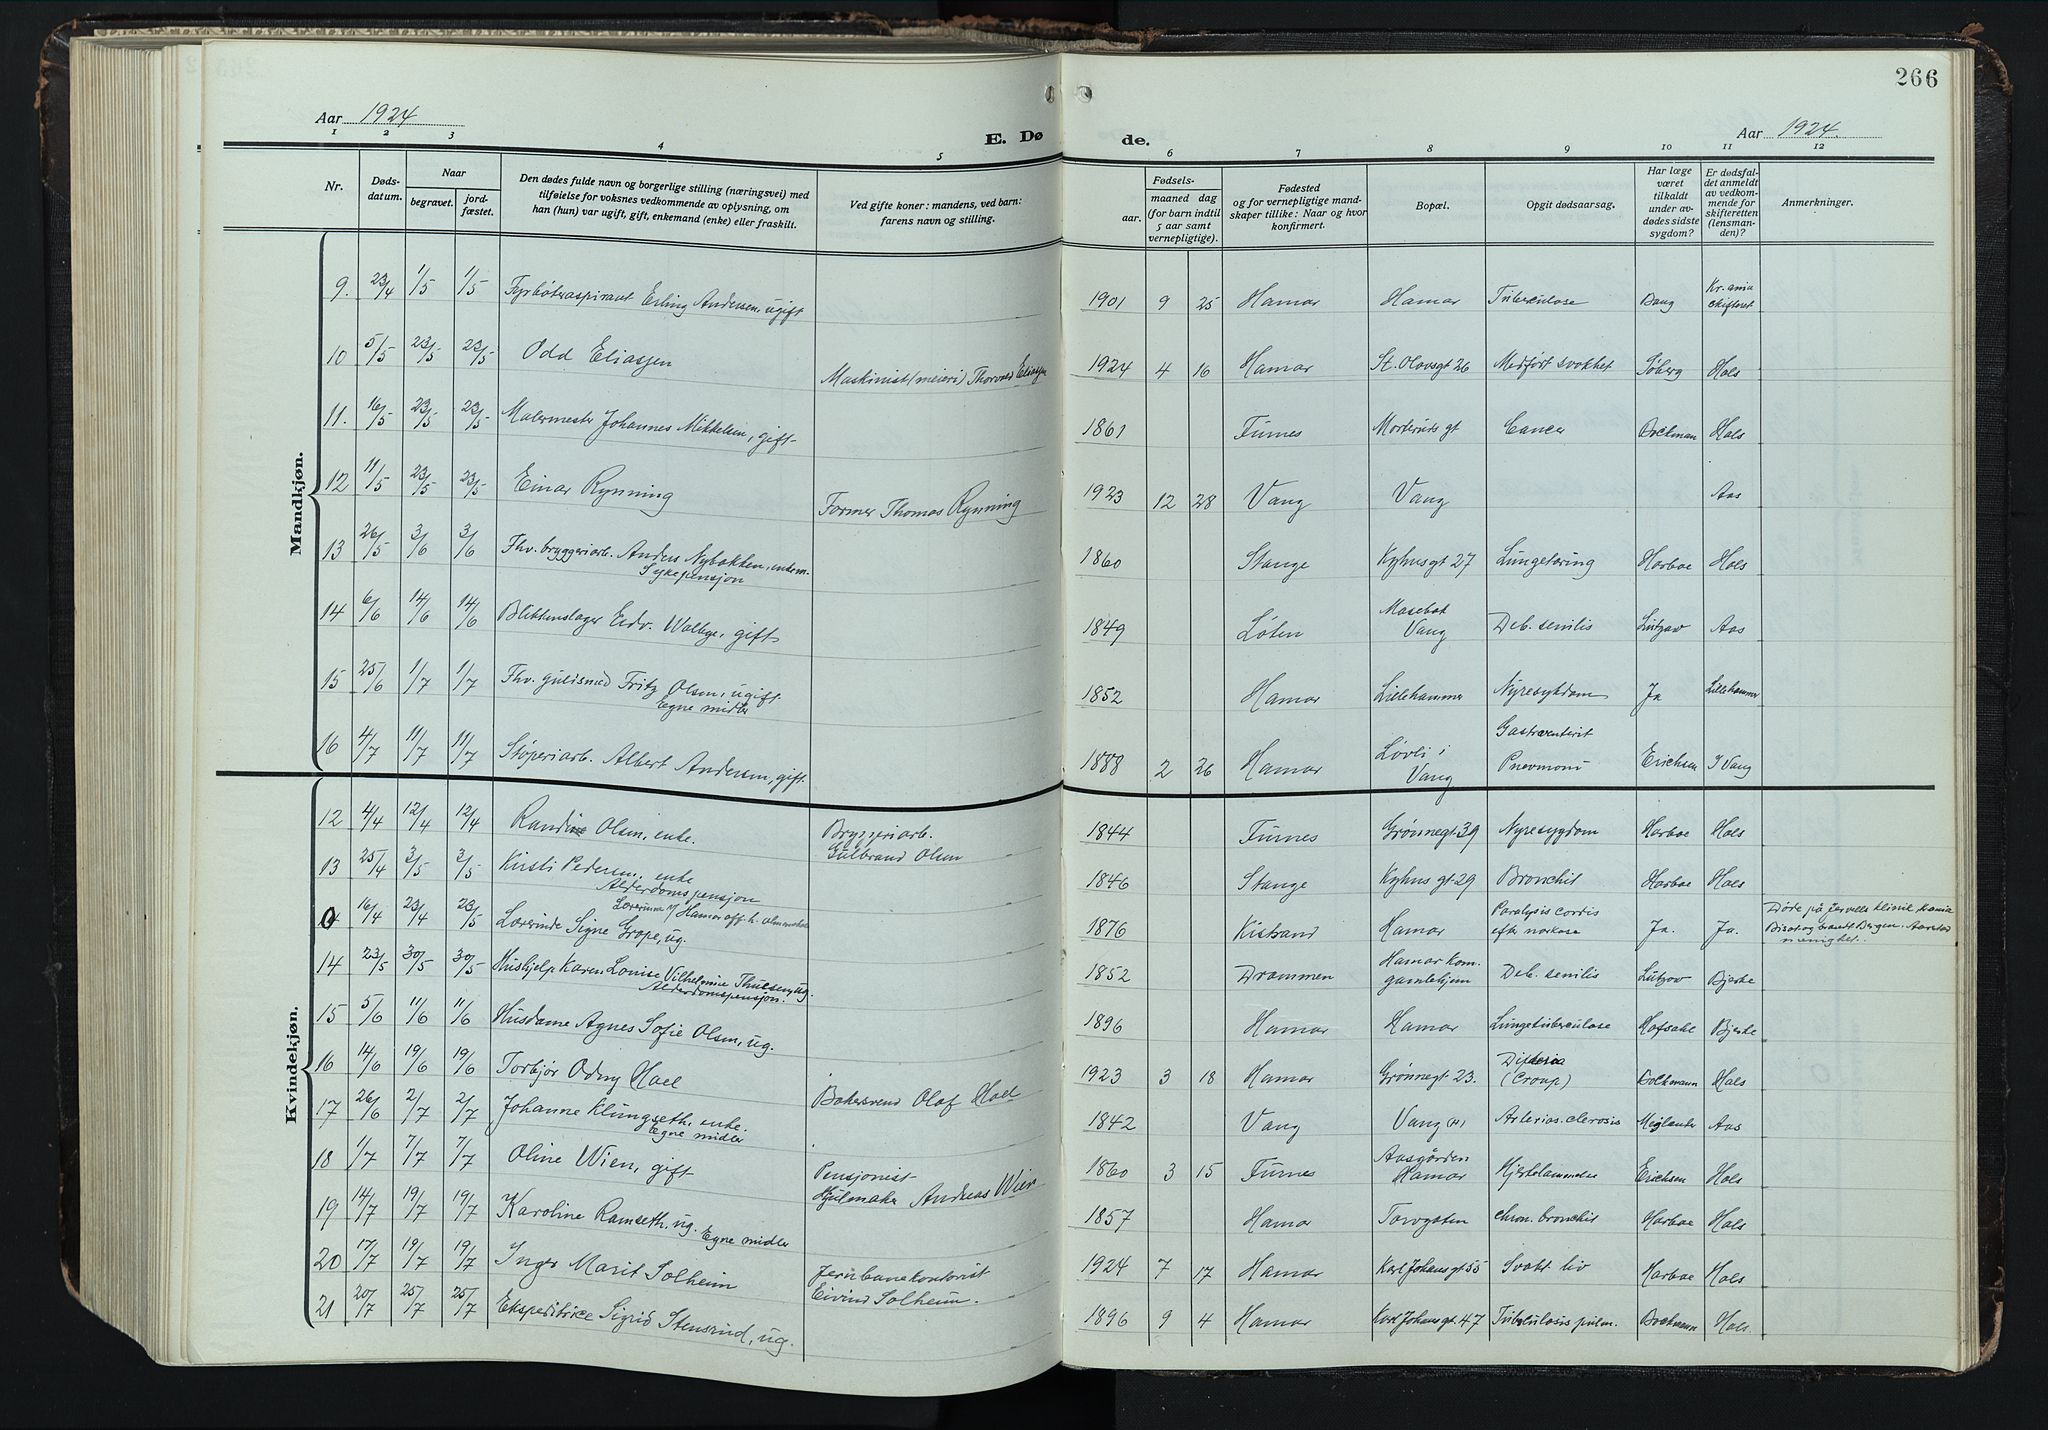 266
Aar 1924
E. Dø de.
Aar 1924.
1 2 3 4 5 6 7 8 9 10 11 12
Nr.
Døds-
datum.
Naar
begravet.
jord-
fæstet.
Den dødes fulde navn og borgerlige stilling (næringsvei) med
tilføielse for voksnes vedkommende av oplysning, om
han (hun) var ugift, gift, enkemand (enke) eller fraskilt.
Ved gifte koner: mandens, ved barn:
farens navn og stilling.
Fødsels-
aar.
maaned dag
(for barn indtil
5 aar samt
vernepligtige).
Fødested
og for vernepligtige mand-
skaper tillike: Naar og hvor
konfirmert.
Bopæl.
Opgit dødsaarsag.
Har læge
været
tilkaldt
under av-
dødes sidste
sygdom?
Er dødsfal-
det anmeldt
av vedkom-
mende for
skifteretten
(lensman-
den)?
Anmerkninger.
Mandkjøn.
9. 23/4 1/5 1/5 Fyrbøteraspirant Erling Andersen, ugift 1901 9 25 Hamar Hamar Tuberculose Kr.ania
skifteret
10 5/5 23/5 23/5 Odd Eliassen Maskinist (meieri) Thorvald Eliassen 1924 4 16 Hamar St. Olavsgt 26 Medfört svakhet Søberg Hals
11. 16/5 23/5 23/5 Malermester Johannes Mikkelsen, gift 1861 Furnes Morteruds gt Cancer Hals
12 11/5 23/5 23/5 Einar Rynning Former Thomas Rynning 1923 12 28 Vang Vang Aas
13 26/5 3/6 3/6 Fhv. bryggeriarb. Anders Nybakken, enkem.
Sykepensjon 1860 Stange Kyhusgt 27 Lungetæring Harboe Hals
14 6/6 14/6 14/6 Blikkenslager Edv. Walbye, gift 1849 Løten Vang Deb. senilis Lützow Aas
15 25/6 1/7 1/7 Fhv. gulismed Fritz Olsen, ugift
Egne midler 1852 Hamar Lillehammer Nyresykdom Ja Lillehammer
16 4/7 11/7 11/7 Støperiarb. Albert Andersen, gift 1888 2 26 Hamar Løvli i
Vang Gastroenterit
Pnevmoni Erichsen I Vang
Kvindekjøn.
12 4/4 12/4 12/4 Randine Olsen, enke. Bryggeriarb.
Gulbrand Olsen 1844 Furnes Grønnegt 39 Nyresygdom Harboe Hals
13 25/4 3/5 3/5 Kirsti Pedersen, enke
Alderdomspensjon 1846 Stange Kyhus gt 29 Bronchit Harboe Hals
0 16/4 23/4 23/5 Lærerinde Signe Grape, ug. 1876 Kistrand Hamar Paralysis cordis
efter narkose Ja. Ja.
14 23/5 30/5 30/5 Hushjelp Karen Louise Vilhelmine Thulsen, ug.
Alderdomspensjon. 1852 Drammen Hamar kom.
gamlehjem Deb. senilis Lützow Bjerke
15 5/6 11/6 11/6 Husdame Agnes Sofie Olsen, ug. 1896 Hamar Hamar Lungetuberculose Hofsake Bjerke
16 14/6 19/6 19/6 Torbjør Odny Hoel Bakersvend Olaf Hoel 1923 3 18 Hamar Grønnegt 23. Difteria
(Croup) Hals
17 26/6 2/7 2/7 Johanne Klungseth, enke.
Egne midler 1842 Vang Vang Arterios-clerosis Aas
18 1/7 7/7 7/7 Oline Wien, gift Pensjonist
Hjulmaker Andreas Wien 1860 3 15 Furnes Aasgården
Hamar Hjertelammelse Erichsen Hals
19 14/7 19/7 19/7 Karoline Ramseth, ug. Egne midler 1857 Hamar Torvgaten chron. bronchit Harboe Hals
20 17/7 19/7 19/7 Inger Marit Solheim Jernbanekontorist
Eivind Solheim. 1924 7 17 Hamar Karl Johansgt 55 Svakt liv Harboe Hals
21 20/7 25/7 25/7 Ekspeditrice Sigrid Stensrud, ug. 1896 9 4 Hamar Karl Johansgt. 47 Tuberculosis pulm. Hals.